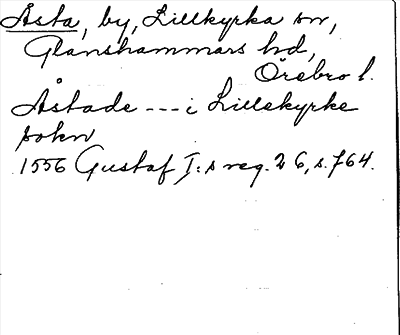 Åsta, by, Lillkyrka sn,
Glanshammars hd,
Örebro l.
Åstade --- i Lillekyrke
sokn
1556 Gustaf I:s reg. 26, s. 764.